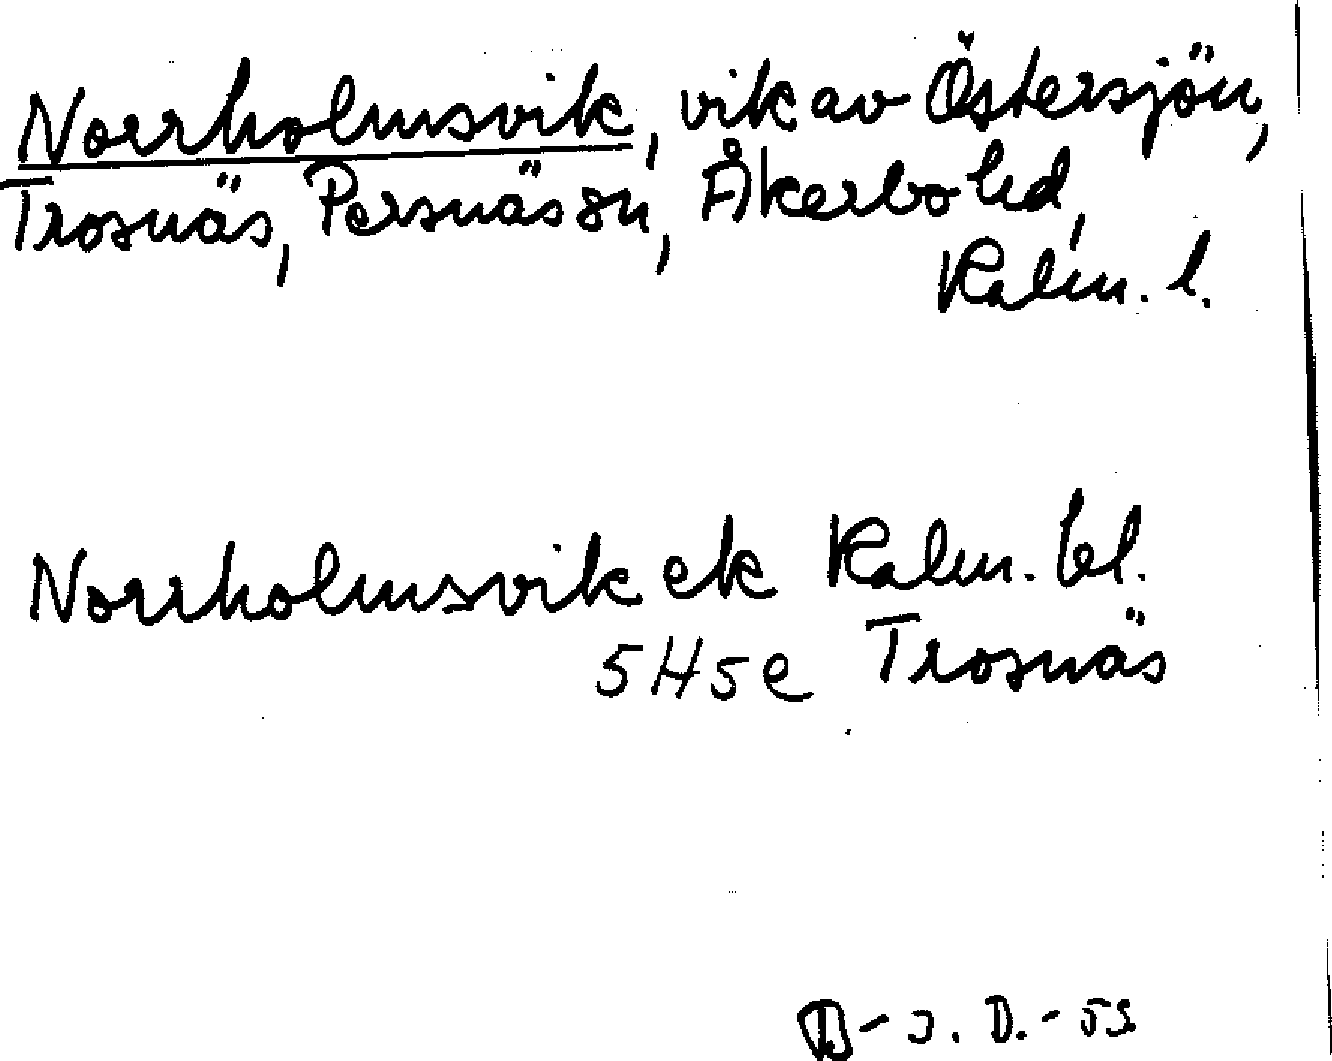 Norrholmsvik, vik av Östersjön,
Trosnäs, Persnäs sn, Åkerbo hd,
Kalm. l.
Norrholmsvik ek Kalm. bl.
5H5e Trosnäs
B-J. D.-53